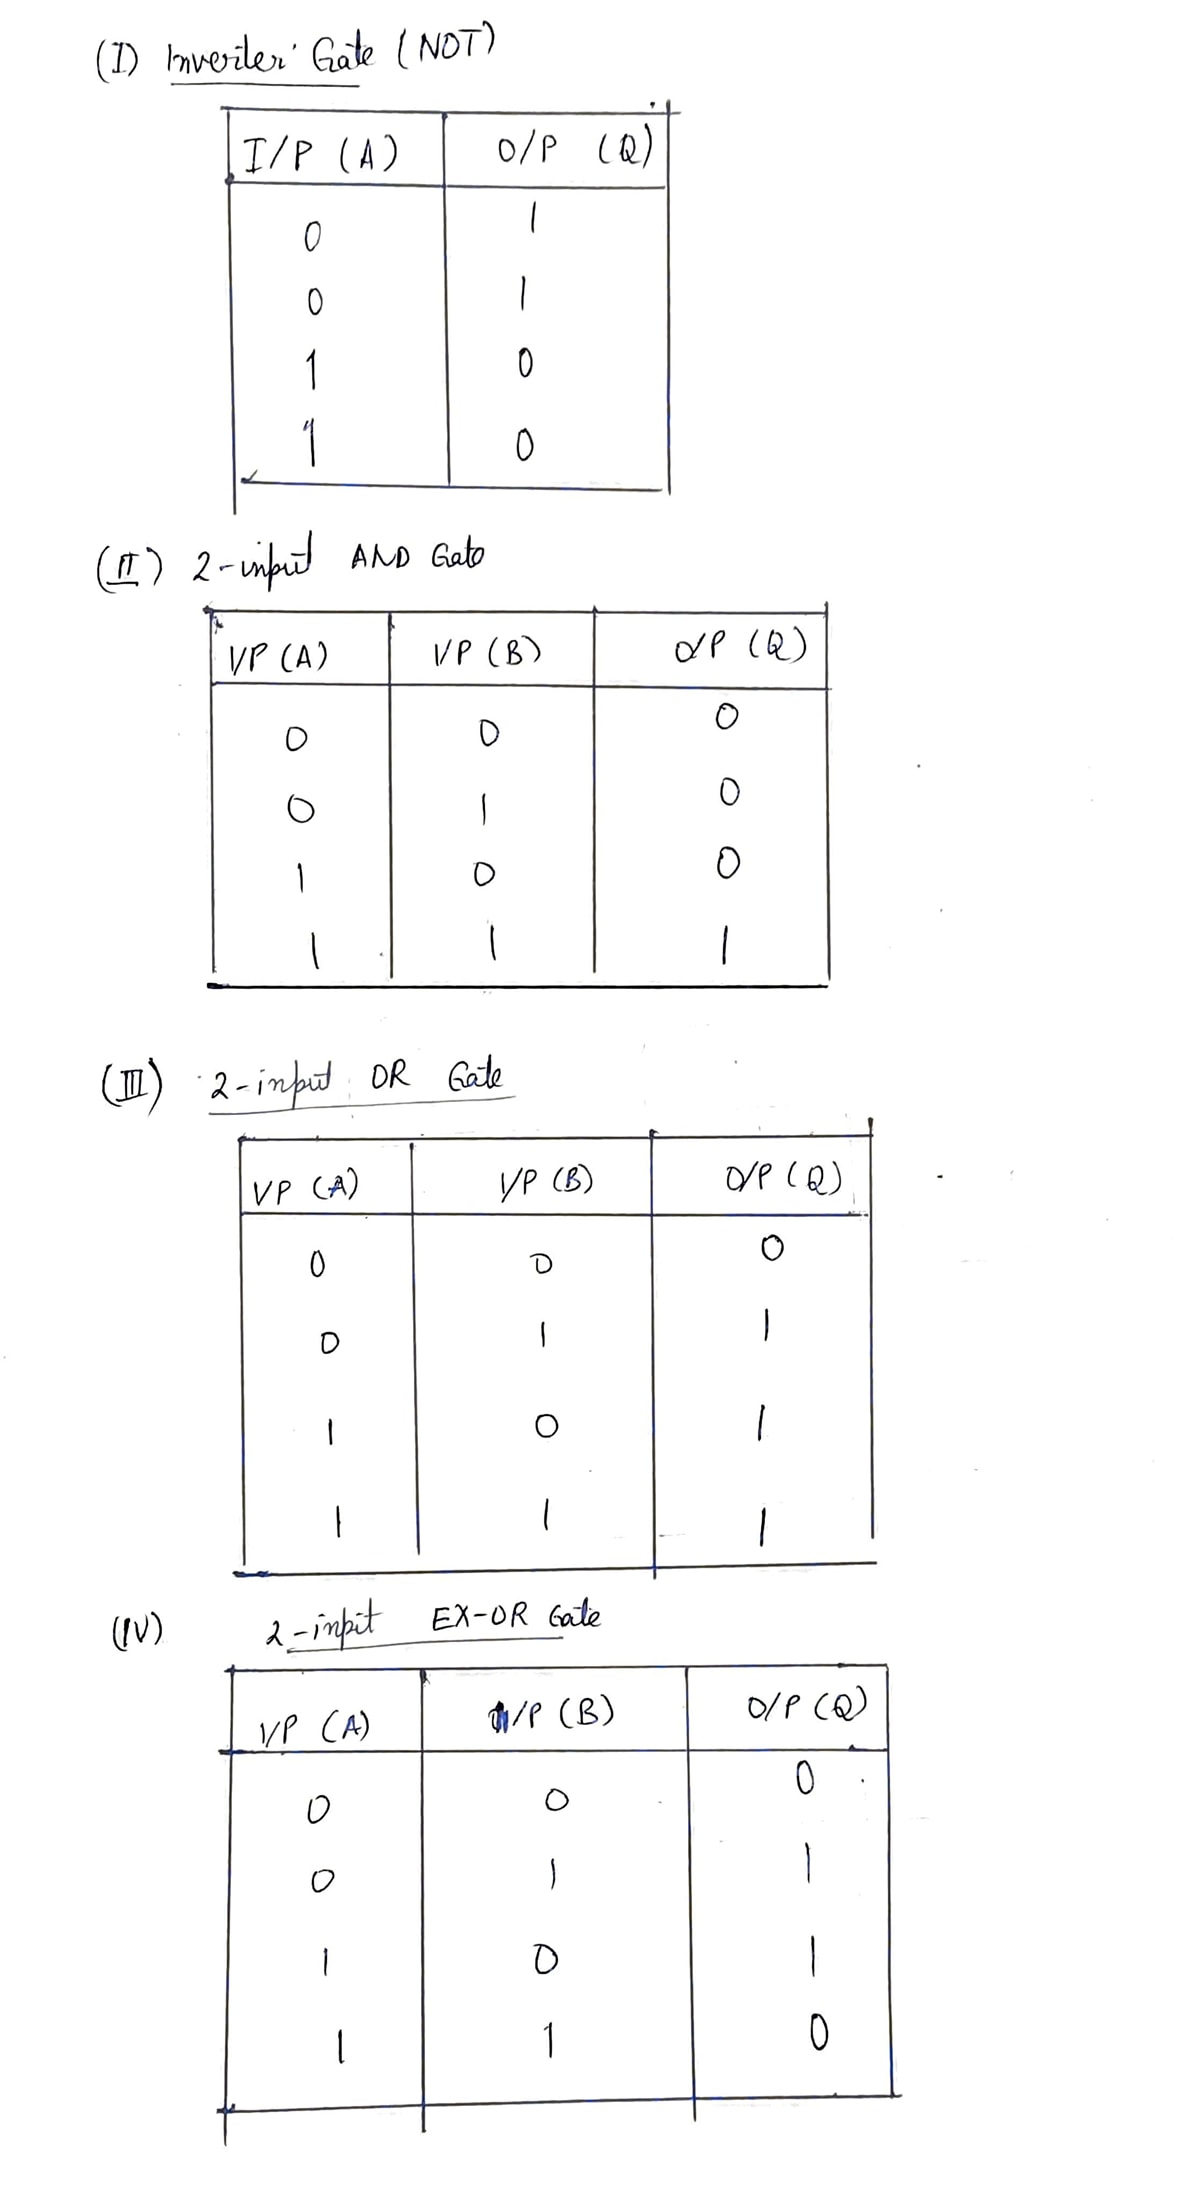 (I) Inverter Gate (NOT)
I/P (A) O/P (Q)
0 1
0 1
1 0
1 0
(II) 2-input AND Gate
I/P (A) I/P (B) O/P (Q)
0 0 0
0 1 0
1 0 0
1 1 1
(III) 2-input OR Gate
I/P (A) I/P (B) O/P (Q)
0 0 0
0 1 1
1 0 1
1 1 1
(IV) 2-input EX-OR Gate
I/P (A) I/P (B) O/P (Q)
0 0 0
0 1 1
1 0 1
1 1 0